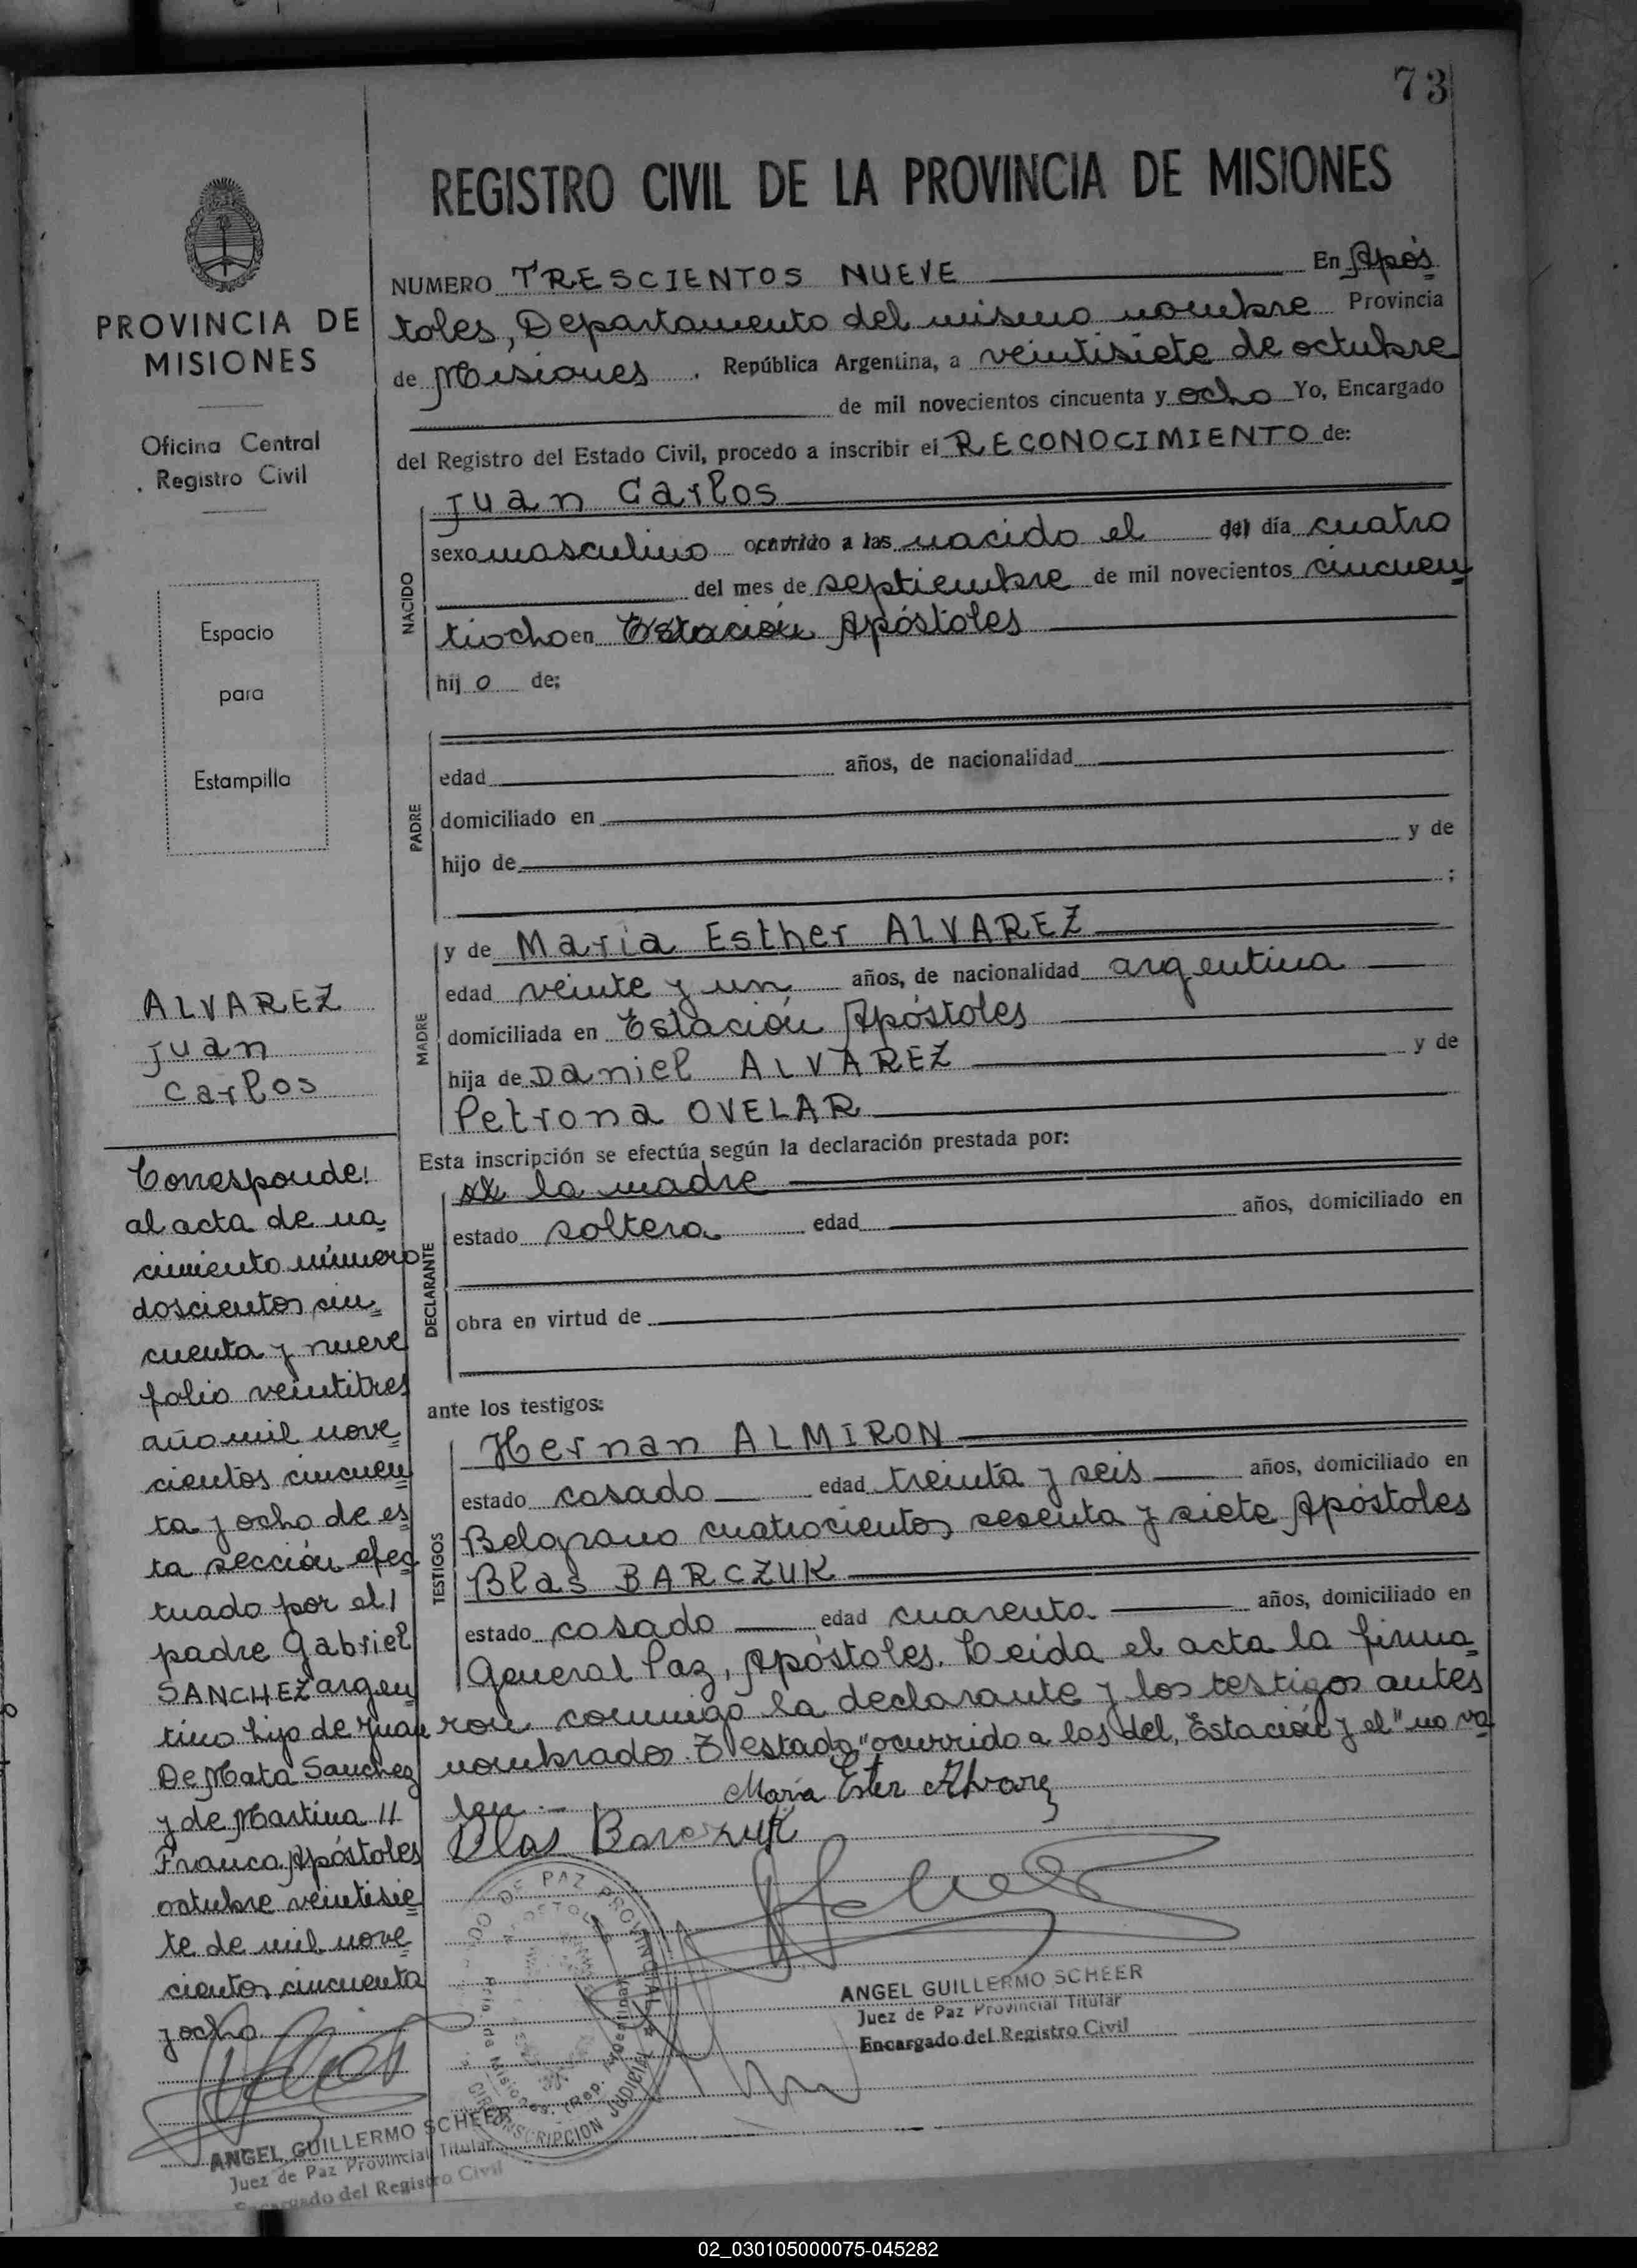 73
REGISTRO CIVIL DE LA PROVINCIA DE MISIONES
PROVINCIA DE
MISIONES
Oficina Central
Registro Civil
Espacio
para
Estampilla
ALVAREZ
Juan
Carlos
Corresponde
al acta de na
cimiento número
doscientos cin
cuenta y nueve
folio veintitres
año mil nove
cientos cincuen
ta y ocho de es
ta sección efec
tuado por el /
padre Gabriel
SANCHEZ argen
tino hijo de Juan
De Mata Sanchez
y de Martina //
Franco. Apóstoles
octubre veintisie
te de mil nove
cientos cincuenta
y ocho.
ANGEL GUILLERMO SCHEER
Juez de Paz Provincial Titular
Encargado del Registro Civil
NUMERO TRESCIENTOS NUEVE En Após
toles, Departamento del mismo nombre Provincia
de Misiones, República Argentina, a veintisiete de octubre
de mil novecientos cincuenta y ocho Yo, Encargado
del Registro del Estado Civil, procedo a inscribir el RECONOCIMIENTO de:
NACIDO
Juan Carlos
sexo masculino ocurrido a las nacido el del día cuatro
del mes de septiembre de mil novecientos cincuen
tiocho en Estación Apóstoles
hij o de;
PADRE
edad años, de nacionalidad
domiciliado en
hijo de y de
;
MADRE
y de María Esther ALVAREZ
edad veinte y un años, de nacionalidad argentina
domiciliada en Estación Apóstoles
hija de Daniel ALVAREZ y de
Petrona OVELAR
Esta inscripción se efectúa según la declaración prestada por:
DECLARANTE
la madre
estado soltera edad años, domiciliado en
obra en virtud de
ante los testigos:
TESTIGOS
Hernan ALMIRON
estado casado edad treinta y seis años, domiciliado en
Belgrano cuatrocientos sesenta y siete Apóstoles
Blas BARCZUK
estado casado edad cuarenta años, domiciliado en
General Paz, Apóstoles. Leida el acta la firma
ron conmigo la declarante y los testigos antes
nombrados. E/ estado "ocurrido a las del, Estación y el" no va
len.-
María Ester Alvarez
Blas Barczuk
DE PAZ PROVINCIAL
CIRCUNSCRIPCION JUDICIAL
ANGEL GUILLERMO SCHEER
Juez de Paz Provincial Titular
Encargado del Registro Civil
02_030105000075-045282